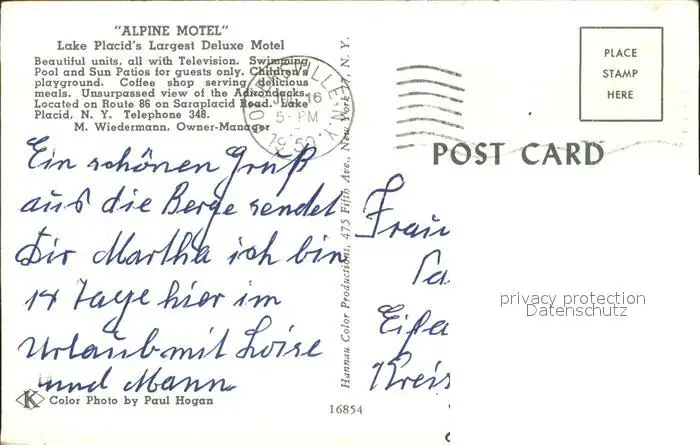 "ALPINE MOTEL"
Lake Placid's Largest Deluxe Motel
Beautiful units, all with Television. Swimming
Pool and Sun Patios for guests only. Children's
playground. Coffee shop serving delicious
meals. Unsurpassed view of the Adirondacks.
Located on Route 86 on Saraplacid Road. Lake
Placid, N. Y. Telephone 348.
M. Wiedermann, Owner-Manager
16
5-PM
N.Y.
PLACE
STAMP
HERE
POST CARD
Ein schönen Gruß
aus die Berge sendet
Dir Martha ich bin
14 Tage hier im
Urlaub mit Loise
und Mann
K Color Photo by Paul Hogan
Hannau Color Productions, 475 Fifth Ave., New York 17, N. Y.
16854
Frau
Eife
Kreis
privacy protection
Datenschutz